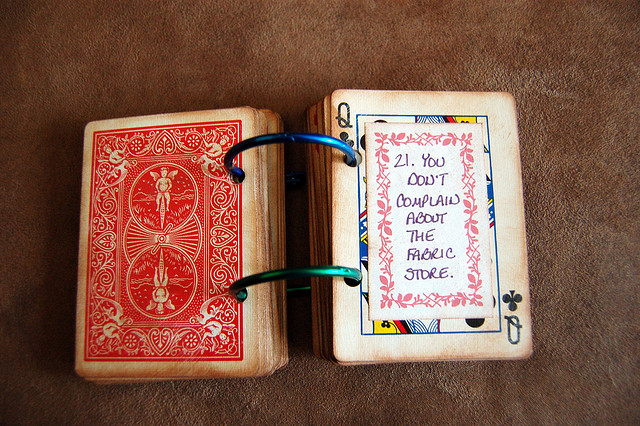 Q
21. YOU
DON'T
COMPLAIN
ABOUT
THE
FABRIC
STORE.
Q